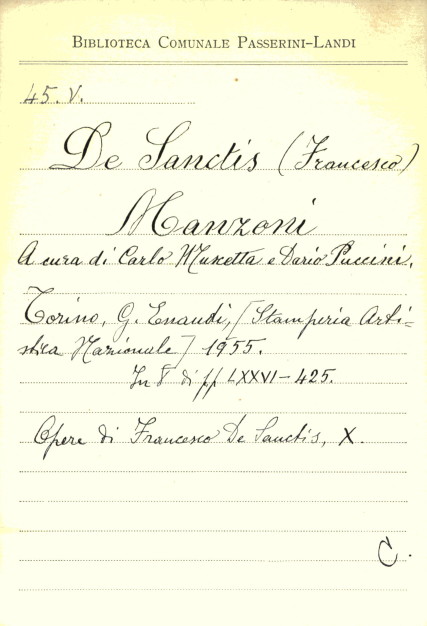 BIBLIOTECA COMUNALE PASSERINI-LANDI
45. V.
De Sanctis (Francesco)
Manzoni
A cura di Carlo Muscetta e Dario Puccini.
Torino, G. Einaudi, [Stamperia Arti-
stica Nazionale] 1955.
In 8° di pp LXXVI-425.
Opere di Francesco De Sanctis, X.
C.